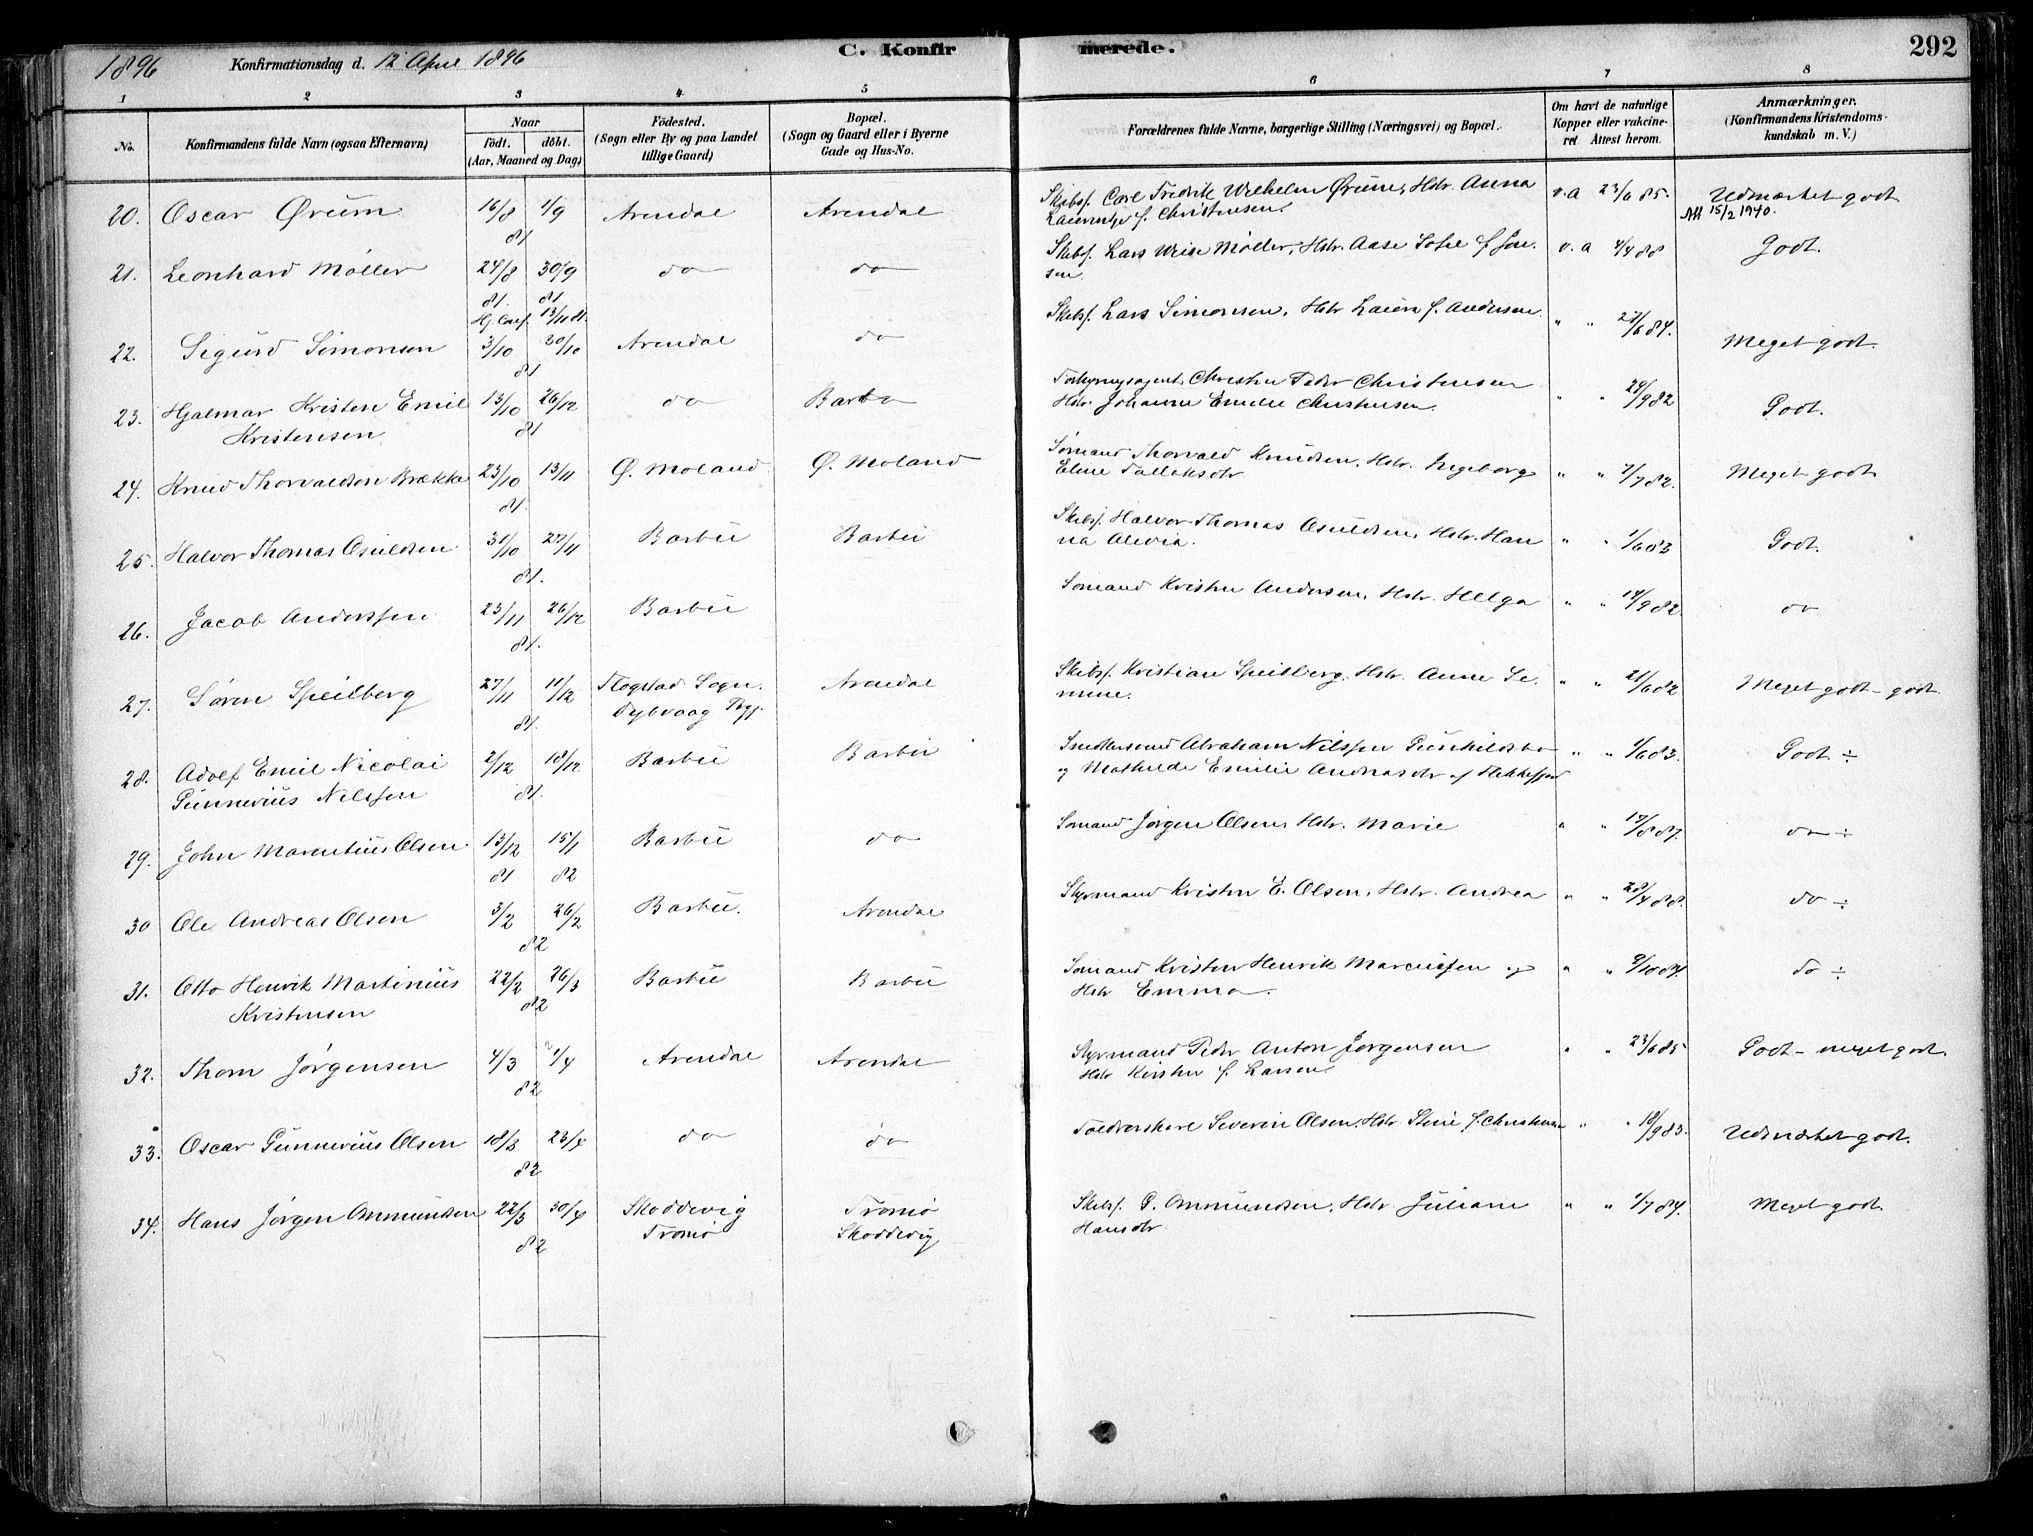 1896 Konfirmationsdag d. 12 April 1896 C. Konfirmerede. 292
1 2 3 4 5 6 7 8
No. Konfirmandens fulde Navn (ogsaa Efternavn) Naar Födt. döbt. (Aar, Maaned og Dag) Födested. (Sogn eller By og paa Landet tillige Gaard) Bopæl. (Sogn og Gaard eller i Byerne Gade og Hus-No. Forældrenes fulde Navne, borgerlige Stilling (Næringsvei) og Bopæl. Om havt de naturlige Kopper eller vakcineret. Attest herom. Anmærkninger. (Konfirmandens Kristendomskundskab m. V.)
20. Oscar Ørum 16/8 1/9 81 Arendal Arendal Skibsf. Carl Fredrik Wilhelm Ørum, Hstr. Anna f. Christensen. v.a 23/6 85. Udmærket godt Att 15/2 1940.
21. Leonhard Møller 24/8 81. 30/9 81 do do Skibsf. Lars Weise Møller, Hstr. Aase Sofie f. Jensen v.a 4/4 88 Godt.
22. Sigurd Simonsen 3/10 Hj. 13/11 81. 30/10 81 Arendal do Skibsf. Lars Simonsen, Hstr f. Andersen. " " /6 84. Meget godt.
23. Hjalmar Kristen Emil Kristensen 13/10 26/12 81 do Barbo Christen Peder Christensen Hstr. Johanne Emilie Christensen. " " 29/9 82 Godt.
24. Knud Thorvaldsen Brække 23/10 13/11 81. Ø. Moland Ø. Moland Sømand Thorvald Knudsen, Hstr. Ingeborg Eline Tallaksdtr " " 7/7 82. Meget godt
25. Halvor Thomas Osuldsen 31/10 27/11 81. Barbu Barbu Skibsf. Halvor Thomas Osuldsen, Hstr. Hanna Olivia. " " 1/6 83 Godt.
26. Jacob Anderssen 23/11 26/12 81. Barbu Sømand Kristen Andersen, Hstr. Helga " " 14/9 82 do
27. Søren Speilberg 27/11 11/12 81. Flogstad Sogn. Dybvaag Pgj. Arendal Skibsf. Kristian Speilberg, Hstr. Anne Semine. " " 21/6 82 Meget godt - godt
28. Adolf Emil Nicolai Gunnerius Nilssen 2/12 18/12 81. Barbu Barbu Abraham Nilssen Gunhildsbo og Mathilde Emilie Andreasdtr " " 1/6 83. Godt ÷
29. John Marentius Olsen 13/12 81 15/1 82 Barbu do Sømand Jørgen Olsen, Hstr. Marie " " 17/8 87. do ÷
30 Ole Andreas Olsen 3/2 26/2 82 Barbu. Arendal Styrmand Kristen E. Olsen, Hstr. Andrea " " 28/4 88. do ÷
31. Otto Henrik Martinius Kristensen 22/2 26/3 82 Barbu Barbu Sømand Kristen Henrik Marcussen og Hstr Emma. " " 9/10 84. do ÷
32. Thom Jørgensen 4/3 /4 82 Arendal Arendal Styrmand Peder Anton Jørgensen Hstr Kirsten f. Larsen. " " 23/6 85 Godt - meget godt
33. Oscar Gunnerius Olsen 18/3 23/4 82 do do Severin Olsen, Hstr Stine f. Christensen " " 18/9 83. Udmærket godt.
34. Hans Jørgen Ommundsen 22/3 30/4 82 Skoddevig Tromø Tromø Skoddevig Skibsf. G. Ommundsen, Hstr Juliane Hansdtr " " 1/7 84. Meget godt.